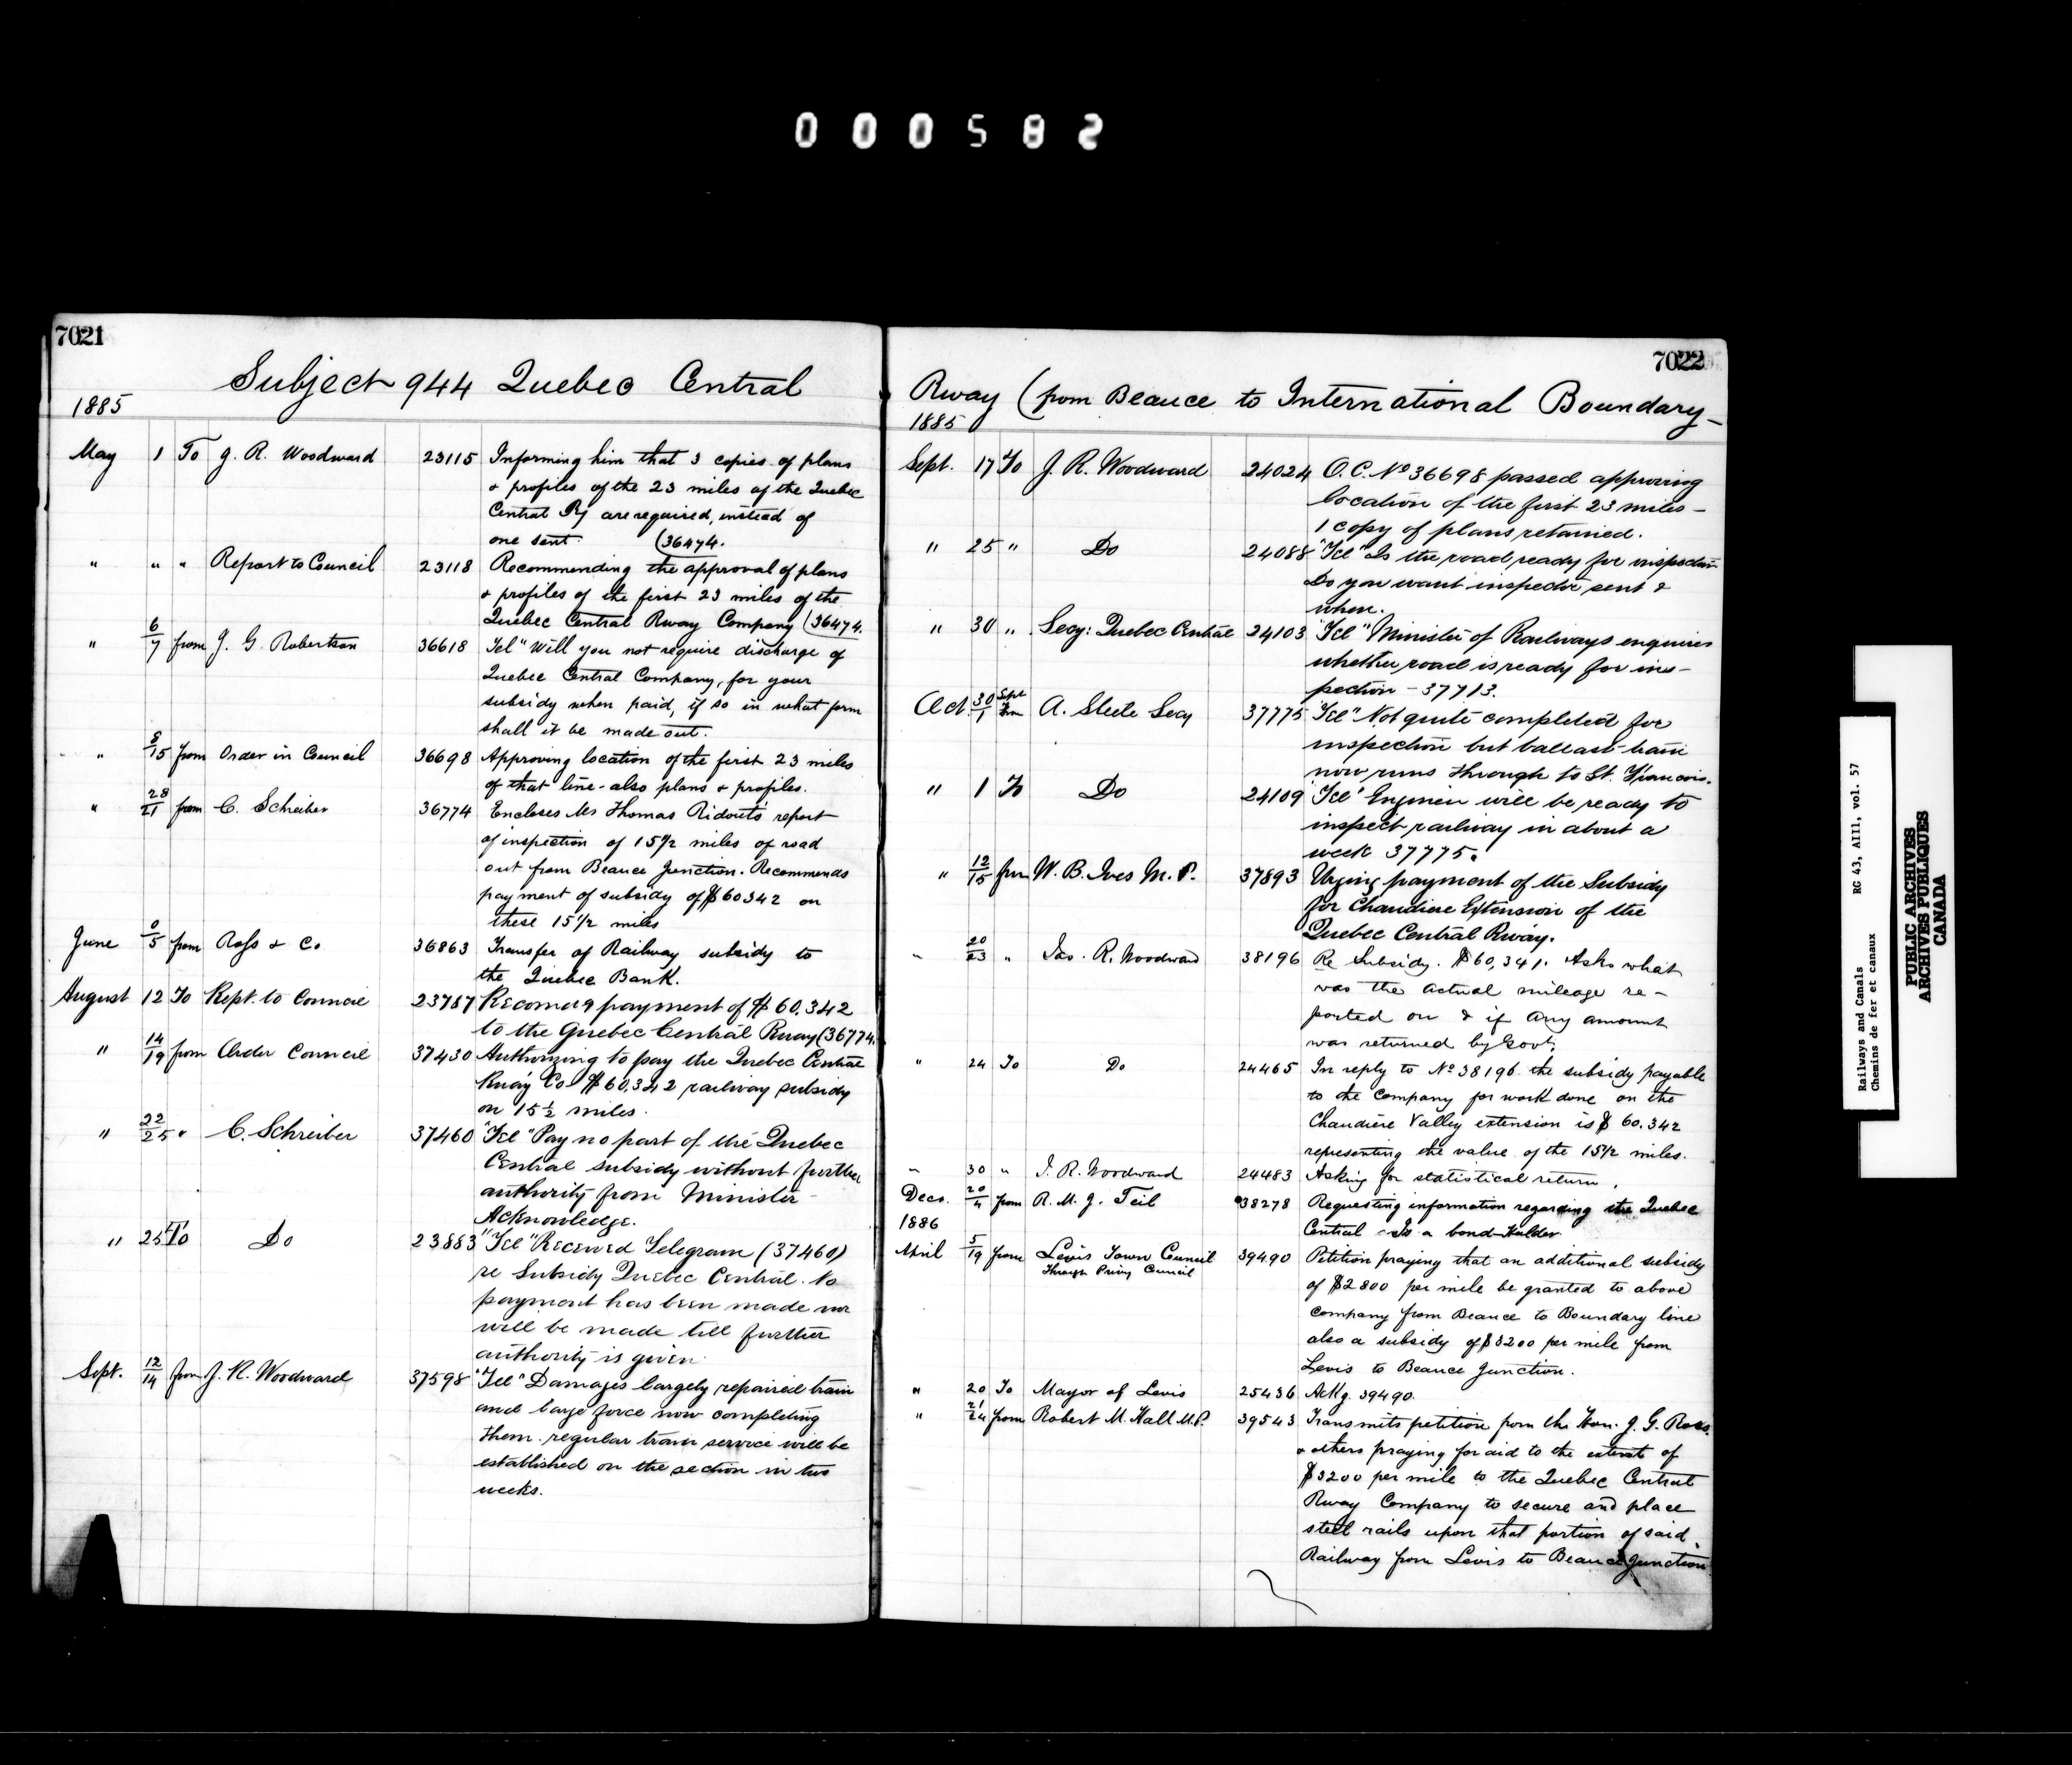 000582
7021
Subject 944 Quebec Central
1885
May 1 To J. R. Woodward 23115 Informing him that 3 copies of plans
& profiles of the 23 miles of the Quebec
Central Ry are required, instead of
one sent. (36474.
" " " Report to Council 23118 Recommending the approval of plans
& profiles of the first 23 miles of the
Quebec Central Rway Company (36474.
" 6/7 from J. G. Robertson 36618 Tel" Will you not require discharge of
Quebec Central Company, for your
subsidy when paid, if so in what form
shall it be made out.
" 8/15 from Order in Council 36698 Approving location of the first 23 miles
of that line - also plans & profiles.
" 28/21 from C. Schreiber 36774 Encloses Mr Thomas Ridout's report
of inspection of 15 1/2 miles of road
out from Beauce Junction. Recommends
payment of subsidy of $60342 on
these 15 1/2 miles
June /5 from Ross & Co 36863 Transfer of Railway subsidy to
the Quebec Bank.
August 12 To Rept. to Council 23787 Recomdg payment of $60.342
to the Quebec Central Rway (36774.
" 14/19 from Order Council 37430 Authorizing to pay the Quebec Central
Rway Co $60,342 railway subsidy
on 15 1/2 miles.
" 22/25 " C. Schreiber 37460 "Tel" Pay no part of the Quebec
Central subsidy without further
authority from Minister -
Acknowledge.
" 25 To Do 23883 "Tel" Received Telegram (37460)
re Subsidy Quebec Central. No
payment has been made nor
will be made till further
authority is given.
Sept. 12/14 from J. R. Woodward 37598 "Tel" Damages largely repaired train
and large force now completing
them. regular train service will be
established on the section in two
weeks.
7022
Rway (from Beauce to International Boundary -
1885
Sept. 17 To J. R. Woodward 24024 O.C. No 36698 passed approving
location of the first 23 miles -
1 copy of plans retained.
" 25 " Do 24088 "Tel" Is the road ready for inspection
Do you want inspector sent &
when.
" 30 " Secy: Quebec Central 24103 "Tel" Minister of Railways enquires
whether road is ready for ins-
pection - 37713.
Oct 30/1 Sept from A. Steele Secy 37775 "Tel" Not quite completed for
inspection but ballast train
now runs through to St. Francois.
" 1 To Do 24109 "Tel" Engineer will be ready to
inspect railway in about a
week 37775.
" 12/15 from W. B. Ives M. P. 37893 Urging payment of the Subsidy
for Chaudiere Extension of the
Quebec Central Rway.
" 20/23 " Jas. R. Woodward 38196 Re Subsidy. $60,341. Asks what
was the actual mileage re-
ported on & if any amount
was returned by Govt.
" 24 To Do 24465 In reply to No 38196 the subsidy payable
to the Company for work done on the
Chaudiere Valley extension is $60.342
representing the value of the 15 1/2 miles.
" 30 " J. R. Woodward 24483 Asking for statistical return.
Dec. 20/4 from R. M. J. Teil 38278 Requesting information regarding the Quebec
Central - Is a bond-Holder
1886
April 5/19 from Levis Town Council 39490 Petition praying that an additional subsidy
Through Privy Council
of $2800 per mile be granted to above
company from Beauce to Boundary line
also a subsidy of $3200 per mile from
Levis to Beauce Junction.
" 20 To Mayor of Levis 25436 Ackg. 39490.
" 21/24 from Robert M. Hall M.P. 39543 Transmits petition from the Hon. J. G. Ross.
& others praying for aid to the extent of
$3200 per mile to the Quebec Central
Rway Company to secure and place
steel rails upon that portion of said
Railway from Levis to Beauce Junction
Railways and Canals RG 43, AIII, vol. 57
Chemins de fer et canaux
PUBLIC ARCHIVES
ARCHIVES PUBLIQUES
CANADA